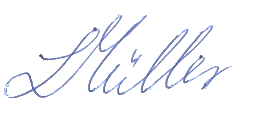 LMüller